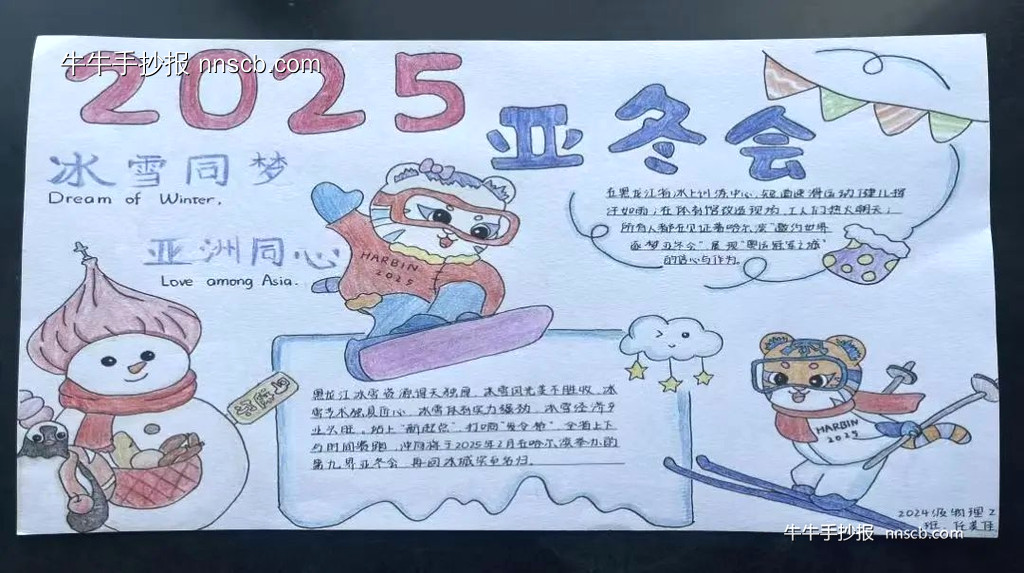 牛牛手抄报 nnscb.com
2025
亚冬会
冰雪同梦
Dream of Winter,
亚洲同心
Love among Asia.
HARBIN
2025
在黑龙江省冰上训练中心,短道速滑运动健儿挥
汗如雨;在体育馆改造现场,工人们热火朝天;
所有人都在见证着哈尔滨"邀约世界
逐梦亚冬会"展现"奥运冠军之城"
的信心与作为。
黑龙江冰雪资源得天独厚,冰雪风光美不胜收,冰
雪艺术独具匠心,冰雪体育实力强劲,冰雪经济产
业火旺。站上"新赶考",打响"发令枪",全省上下
与时间赛跑,冲刺将于2025年2月在哈尔滨举办的
第九届亚冬会,再回冰城实至名归。
HARBIN
2025
2024级物理2
班
牛牛手抄报 nnscb.com